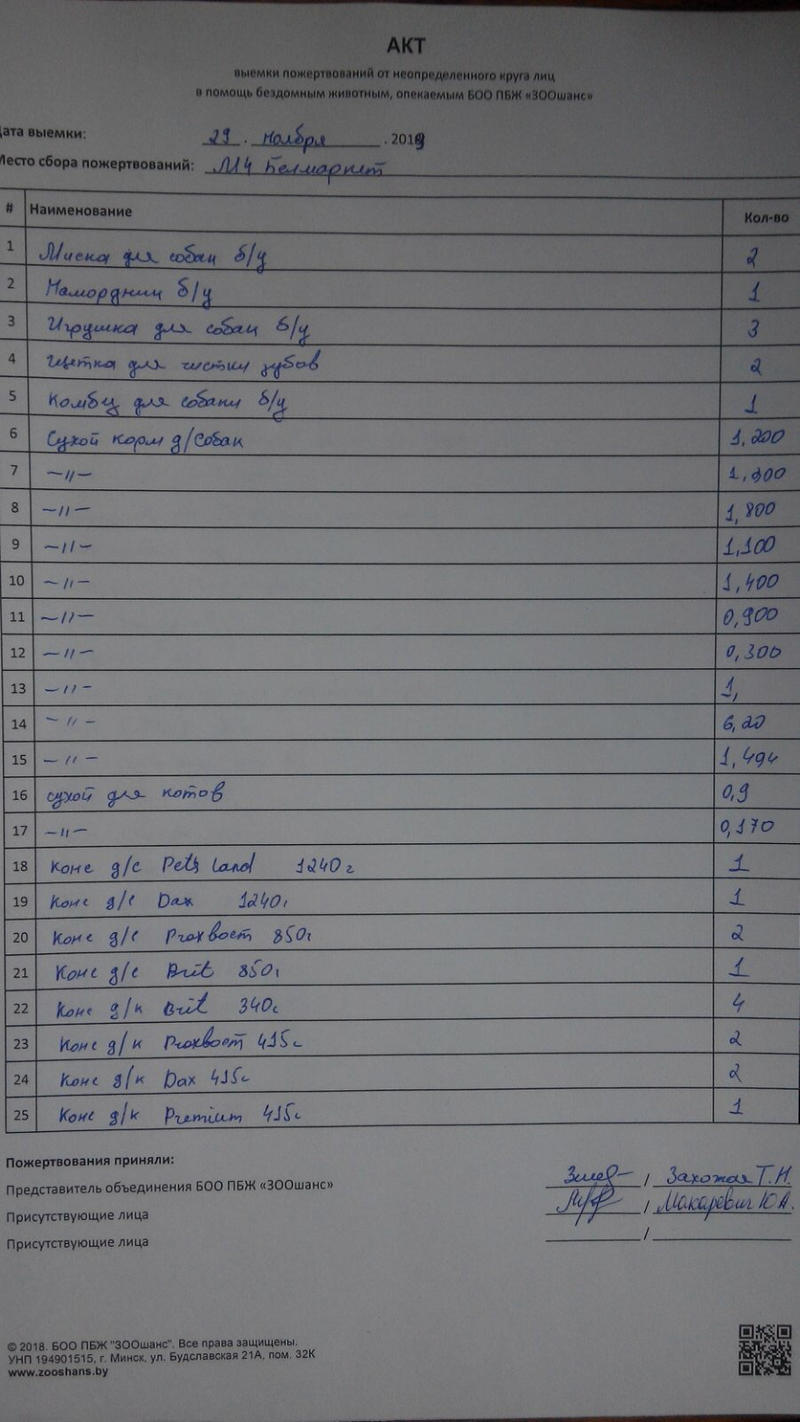 АКТ
выемки пожертвований от неопределенного круга лиц
в помощь бездомным животным, опекаемым БОО ПБЖ «ЗООшанс»
Дата выемки: 29 . ноября . 2019
Место сбора пожертвований: М4 Белмаркет
# Наименование Кол-во
1 Миска для собак б/у 2
2 Намордник б/у 1
3 Игрушка для собак б/у 3
4 Щетка для чистки зубов 2
5 Комбез для собаки б/у 1
6 Сухой корм д/собак 1,200
7 –//–
8 –//– 1,800
9 –//– 1,100
10 –//– 1,400
11 –//– 0,900
12 –//– 0,300
13 –//– 1,
14 –//– 6,20
15 –//– 1,494
16 сухой для котов 0,9
17 –//– 0,170
18 Конс д/с Pets Land 1240г 1
19 Конс д/с Dax 1240г 1
20 Конс д/с Proхвост 850г 2
21 Конс д/с Brit 850г 1
22 Конс д/к Brit 340г 4
23 Конс д/к Proхвост 415г 2
24 Конс д/к Dax 415г 2
25 Конс д/к Premium 415г 1
Пожертвования приняли:
Представитель объединения БОО ПБЖ «ЗООшанс» / Захожая Т.Н.
Присутствующие лица / Макаревич Ю.А.
Присутствующие лица /
© 2018. БОО ПБЖ "ЗООшанс". Все права защищены.
УНП 194901515, г. Минск, ул. Будславская 21А, пом. 32К
www.zooshans.by